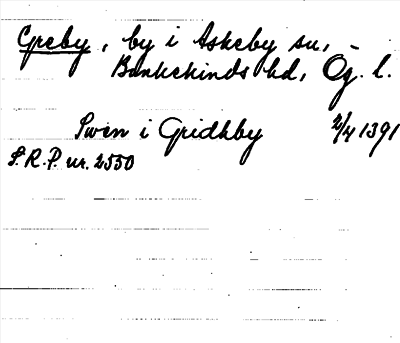 Greby, by i Askeby sn, –
Bankekinds hd, Ög. l.
Swen i Gridhby 2/4 1391
S.R.P. nr. 2550